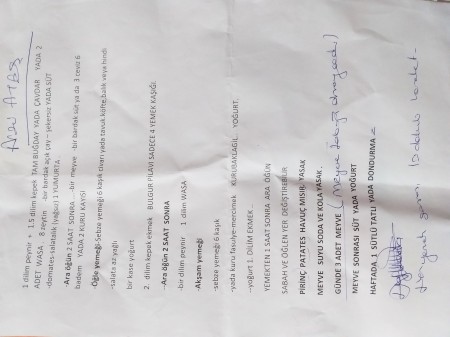 1 dilim peynir + 1.5 dilim kepek TAM BUĞDAY YADA ÇAVDAR YADA 2
ADET WASA. 8 zeytin -bir bardak açık ÇAY – şekersiz YADA SÜT
-domates-salatalık (söğüş) 1 YUMURTA
-Ara öğün 2 SAAT SONRA ...bir meyve -bir bardak süt ya da 3 ceviz 6
badem YADA 2 KURU KAYISI
-Öğle yemeği-Sebze yemeği 6 kaşık civarı yada tavuk köfte balık veya hindi
-salata az yağlı
bir kase yoğurt
2. dilim kepek ekmek BULGUR PİLAVI SADECE 4 YEMEK KAŞIĞI.
--Ara öğün 2 SAAT SONRA
-bir dilim peynir 1 dilim WASA
-Akşam yemeği
-sebze yemeği 6 kaşık
-yada kuru fasulye-mercimek KURUBAKLAGİL. YOĞURT.
-yoğurt 1. DİLİM EKMEK .
YEMEKTEN 1 SAAT SONRA ARA ÖĞÜN
SABAH VE ÖĞLEN YER DEĞİŞTİREBİLİR
PİRİNÇ PATATES HAVUÇ MISIR YASAK
MEYVE SUYU SODA VE KOLA YASAK .
GÜNDE 3 ADET MEYVE ( Meyve
MEYVE SONRASI SÜT YADA YOĞURT
HAFTADA 1 SÜTLÜ TATLI YADA DONDURMA